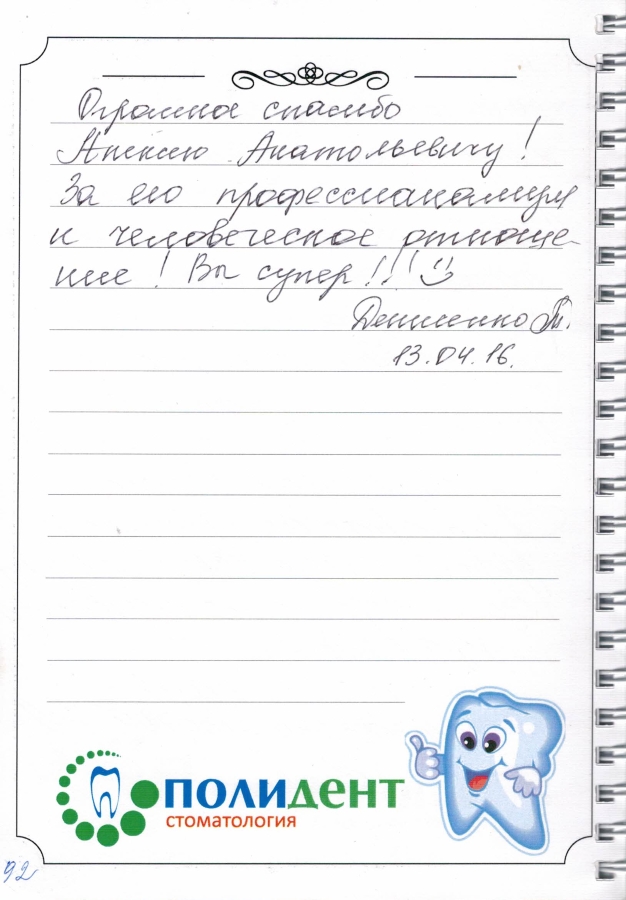 Огромное спасибо
Алексею Анатольевичу!
За его профессионализм
и человеческое отноше-
ние! Вы супер!!!
Денисенко Т.
13.04.16.
ПОЛИДЕНТ
СТОМАТОЛОГИЯ
92